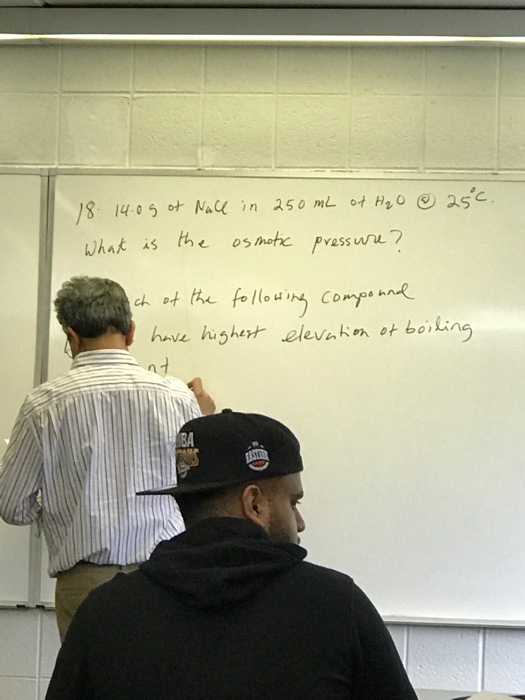 18. 14.0 g of NaCl in 250 mL of H₂O @ 25°C.
What is the osmotic pressure?
ch of the following compound
have highest elevation of boiling
nt